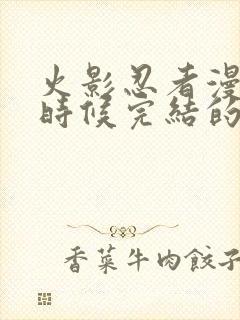 火影忍者漫
時候完結的
香菜牛肉餃子